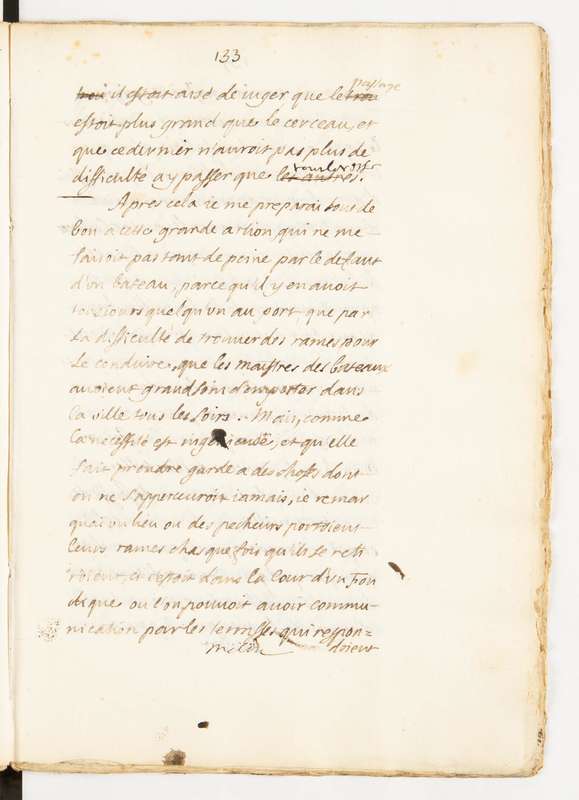 133
passage
trou il estoit aisé de iuger que le trou
estoit plus grand que le cerceau, et
que ce dernier n'auroit pas plus de
tous les
difficulté a y passer que les autres.
Apres cela ie me preparai tous de
bon a cette grande action qui ne me
faisoit pas tant de peine par le defaut
d'un bateau, parce qu'il y en auoit
tousiours quelqu'vn au port que par
la difficulté de trouuer des rames pour
le conduire, que les maistres des bateaux
auoient grand soin d'emporter dans
la ville tous les soirs. Mais, comme
la necessité est ingenieuse, et qu'elle
fait prendre garde a des choses dont
on ne s'apperceuroit iamais, ie remar
quai vn lieu ou des pecheurs portoient
leurs rames chasque fois qu'ils se reti
roient, et c'estoit dans la Cour d'vn Fon
dique ou l'on pouuoit auoir commu-
nication par les terrasses qui respon=
doient